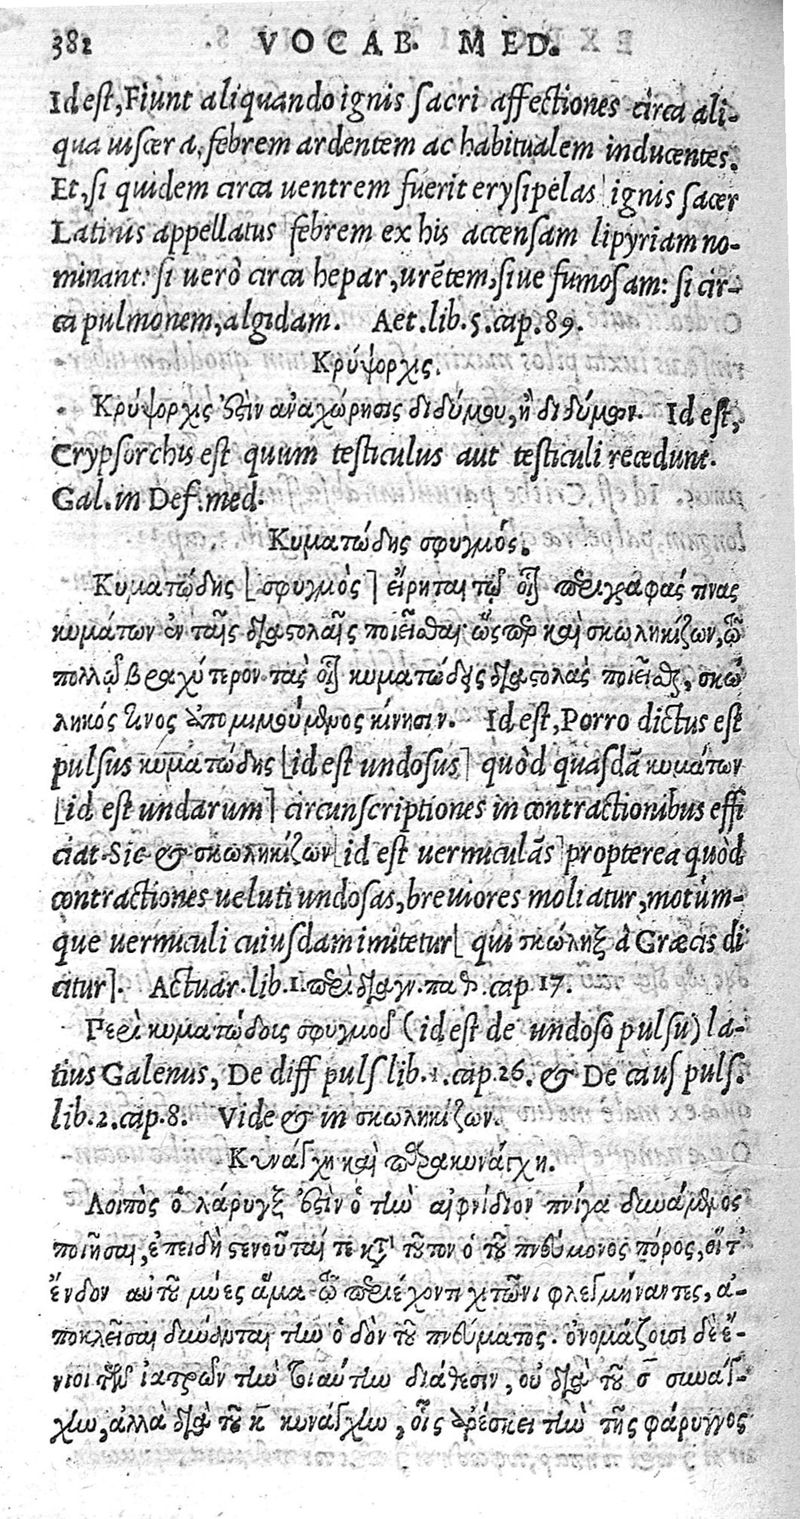 382 VOCAB. MED.
Id est, Fiunt aliquando ignis sacri affectiones circa ali-
qua uiscera, febrem ardentem ac habitualem inducentes.
Et, si quidem circa uentrem fuerit erysipelas [ignis sacer
Latinis appellatus febrem ex his accensam lipyriam no-
minant: si uerò circa hepar, urẽtem, siue fumosam: si cir-
ca pulmonem, algidam. Aet. lib. 5. cap. 89.
Κρύψορχις.
Κρύψορχις ἐστὶν ἀναχώρησις διδύμου, ἢ διδύμων. Id est,
Crypsorchis est quum testiculus aut testiculi recedunt.
Gal. in Def. med.
Κυματώδης σφυγμός.
Κυματώδης [σφυγμὸς] εἴρηται τῷ οἷον περιγραφάς τινας
κυμάτων ἐν ταῖς διαστολαῖς ποιεῖσθαι ὥσπερ καὶ σκωληκίζων, τῷ
πολλῷ βραχύτερον τὰς οἷον κυματώδεις διαστολὰς ποιεῖσθαι, σκώ
ληκός τινος ἀπομιμούμενος κίνησιν. Id est, Porro dictus est
pulsus κυματώδης [id est undosus] quòd quasdã κυμάτων
[id est undarum] circunscriptiones in contractionibus effi
ciat. Sic & σκωληκίζων [id est uermiculãs] propterea quòd
contractiones ueluti undosas, breuiores moliatur, motúm-
que uermiculi cuiusdam imitetur [qui σκώληξ à Græcis di
citur]. Actuar. lib. 1. περὶ διαγν. παθ. cap. 17.
Περὶ κυματώδοις σφυγμοῦ (id est de undoso pulsu) la-
tius Galenus, De diff puls lib. 1. cap. 26. & De caus puls.
lib. 2. cap. 8. Vide & in σκωληκίζων.
Κυνάγχη καὶ παρακυνάγχη.
Λοιπὸς ὁ λάρυγξ ἐστὶν ὁ τὴν αἰφνίδιον πνίγα δυνάμενος
ποιῆσαι, ἐπειδὴ στενοῦται τε κατὰ τοῦτον ὁ τοῦ πνεύμονος πόρος, οἵ τ'
ἔνδον αὐτοῦ μύες ἅμα τῷ περιέχοντι χιτῶνι φλεγμήναντες, ἀ-
ποκλεῖσαι δύνανται τὴν ὁδὸν τοῦ πνεύματος. ὀνομάζουσι δὲ ἔ-
νιοι τῶν ἰατρῶν τὴν τοιαύτην διάθεσιν, οὐ διὰ τοῦ σ̅ συνάγ-
χην, ἀλλὰ διὰ τοῦ κ̅ κυνάγχην, οἷς ἀρέσκει τὴν τῆς φάρυγγος